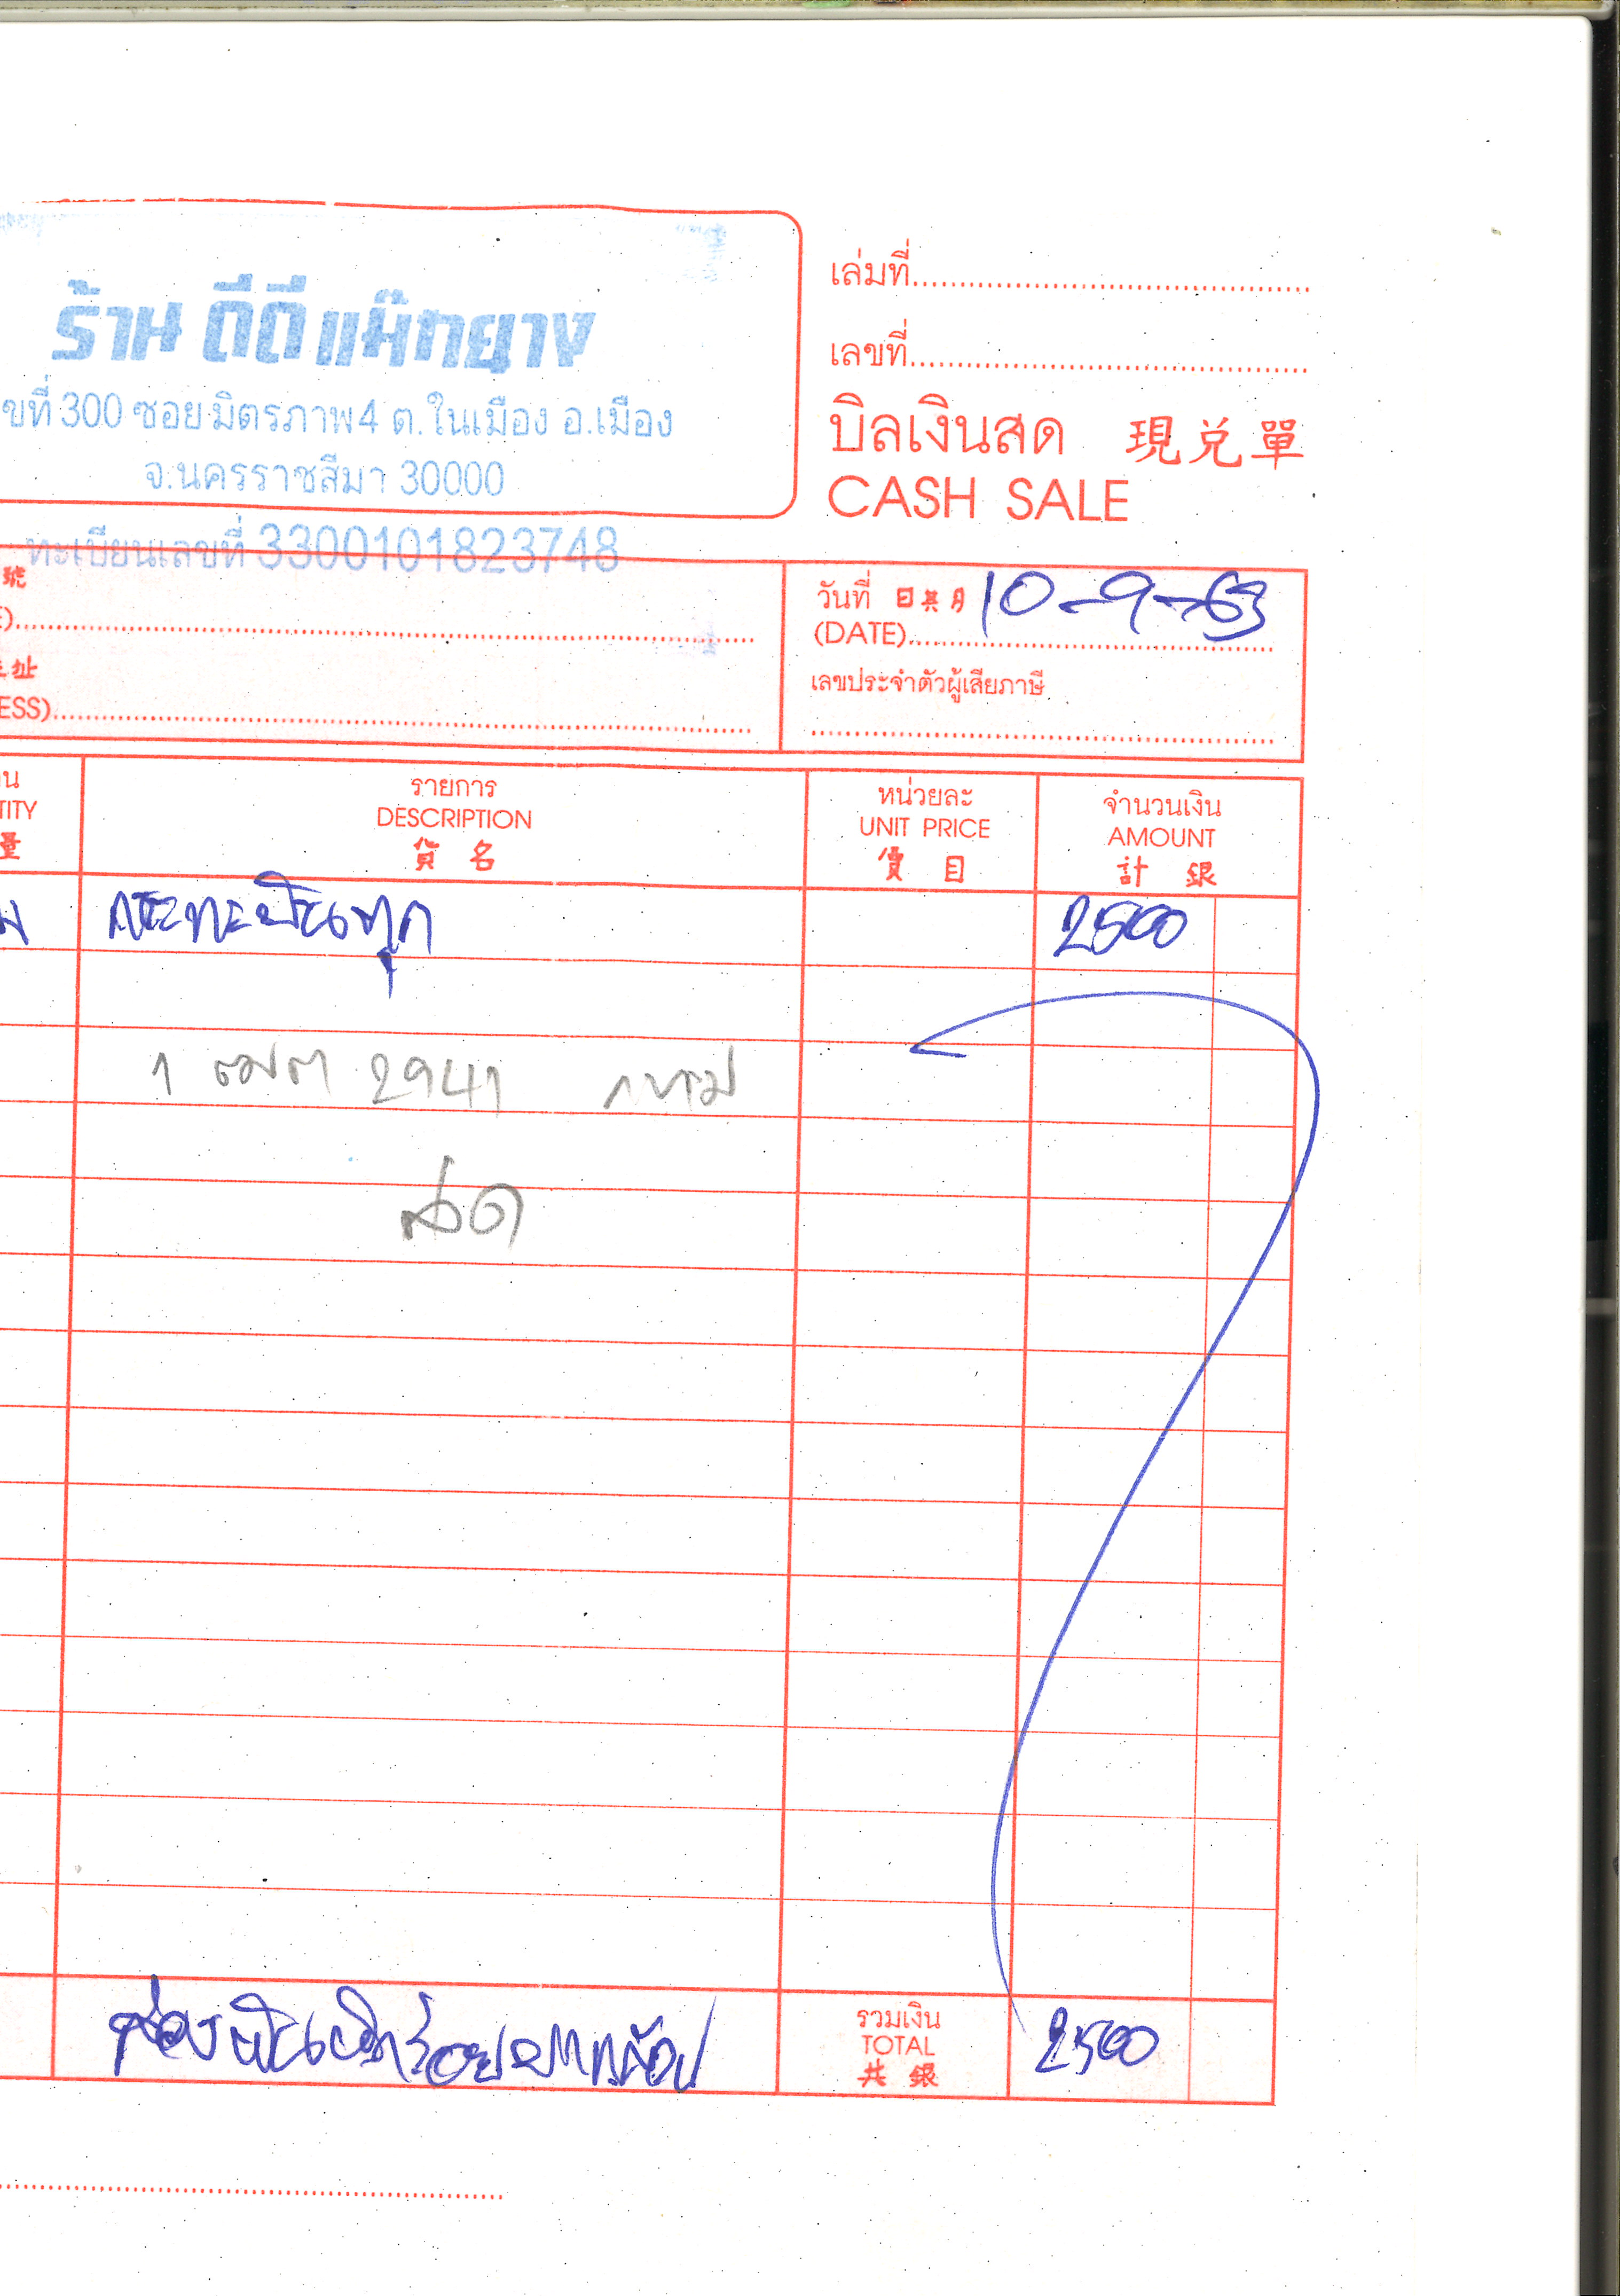 ร้าน ดีดีแม๊กยาง
ขที่ 300 ซอยมิตรภาพ4 ต.ในเมือง อ.เมือง
จ.นครราชสีมา 30000
ทะเบียนเลขที่ 3300101823748
เล่มที่
เลขที่
บิลเงินสด 現兌單
CASH SALE
號
วันที่ 日其月 10-9-63
(DATE)
址
ESS)
เลขประจำตัวผู้เสียภาษี
น รายการ หน่วยละ จำนวนเงิน
TITY DESCRIPTION UNIT PRICE AMOUNT
量 貨名 價目 計銀
กระทะบรรทุก 2500
1 2941
สด
สองพันห้าร้อยบาทถ้วน
รวมเงิน
TOTAL 2500
共銀